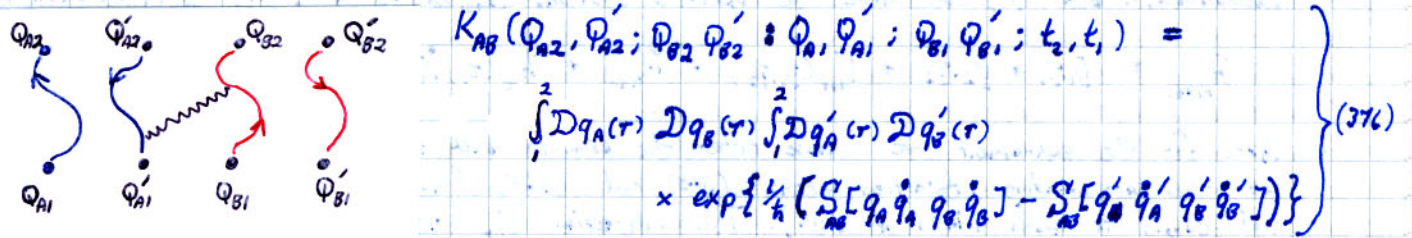 Q_{A2} Q'_{A2} Q_{B2} Q'_{B2}
Q_{A1} Q'_{A1} Q_{B1} Q'_{B1}
K_{AB}(Q_{A2}, Q'_{A2}; Q_{B2} Q'_{B2} : Q_{A1} Q'_{A1}; Q_{B1} Q'_{B1}; t_2, t_1) =
∫_1^2 Dq_A(τ) Dq_B(τ) ∫_1^2 Dq'_A(τ) Dq'_B(τ)
× exp{ i/ħ ( S_{AB}[q_A q̇_A q_B q̇_B] - S_{AB}[q'_A q̇'_A q'_B q̇'_B] ) }
(376)